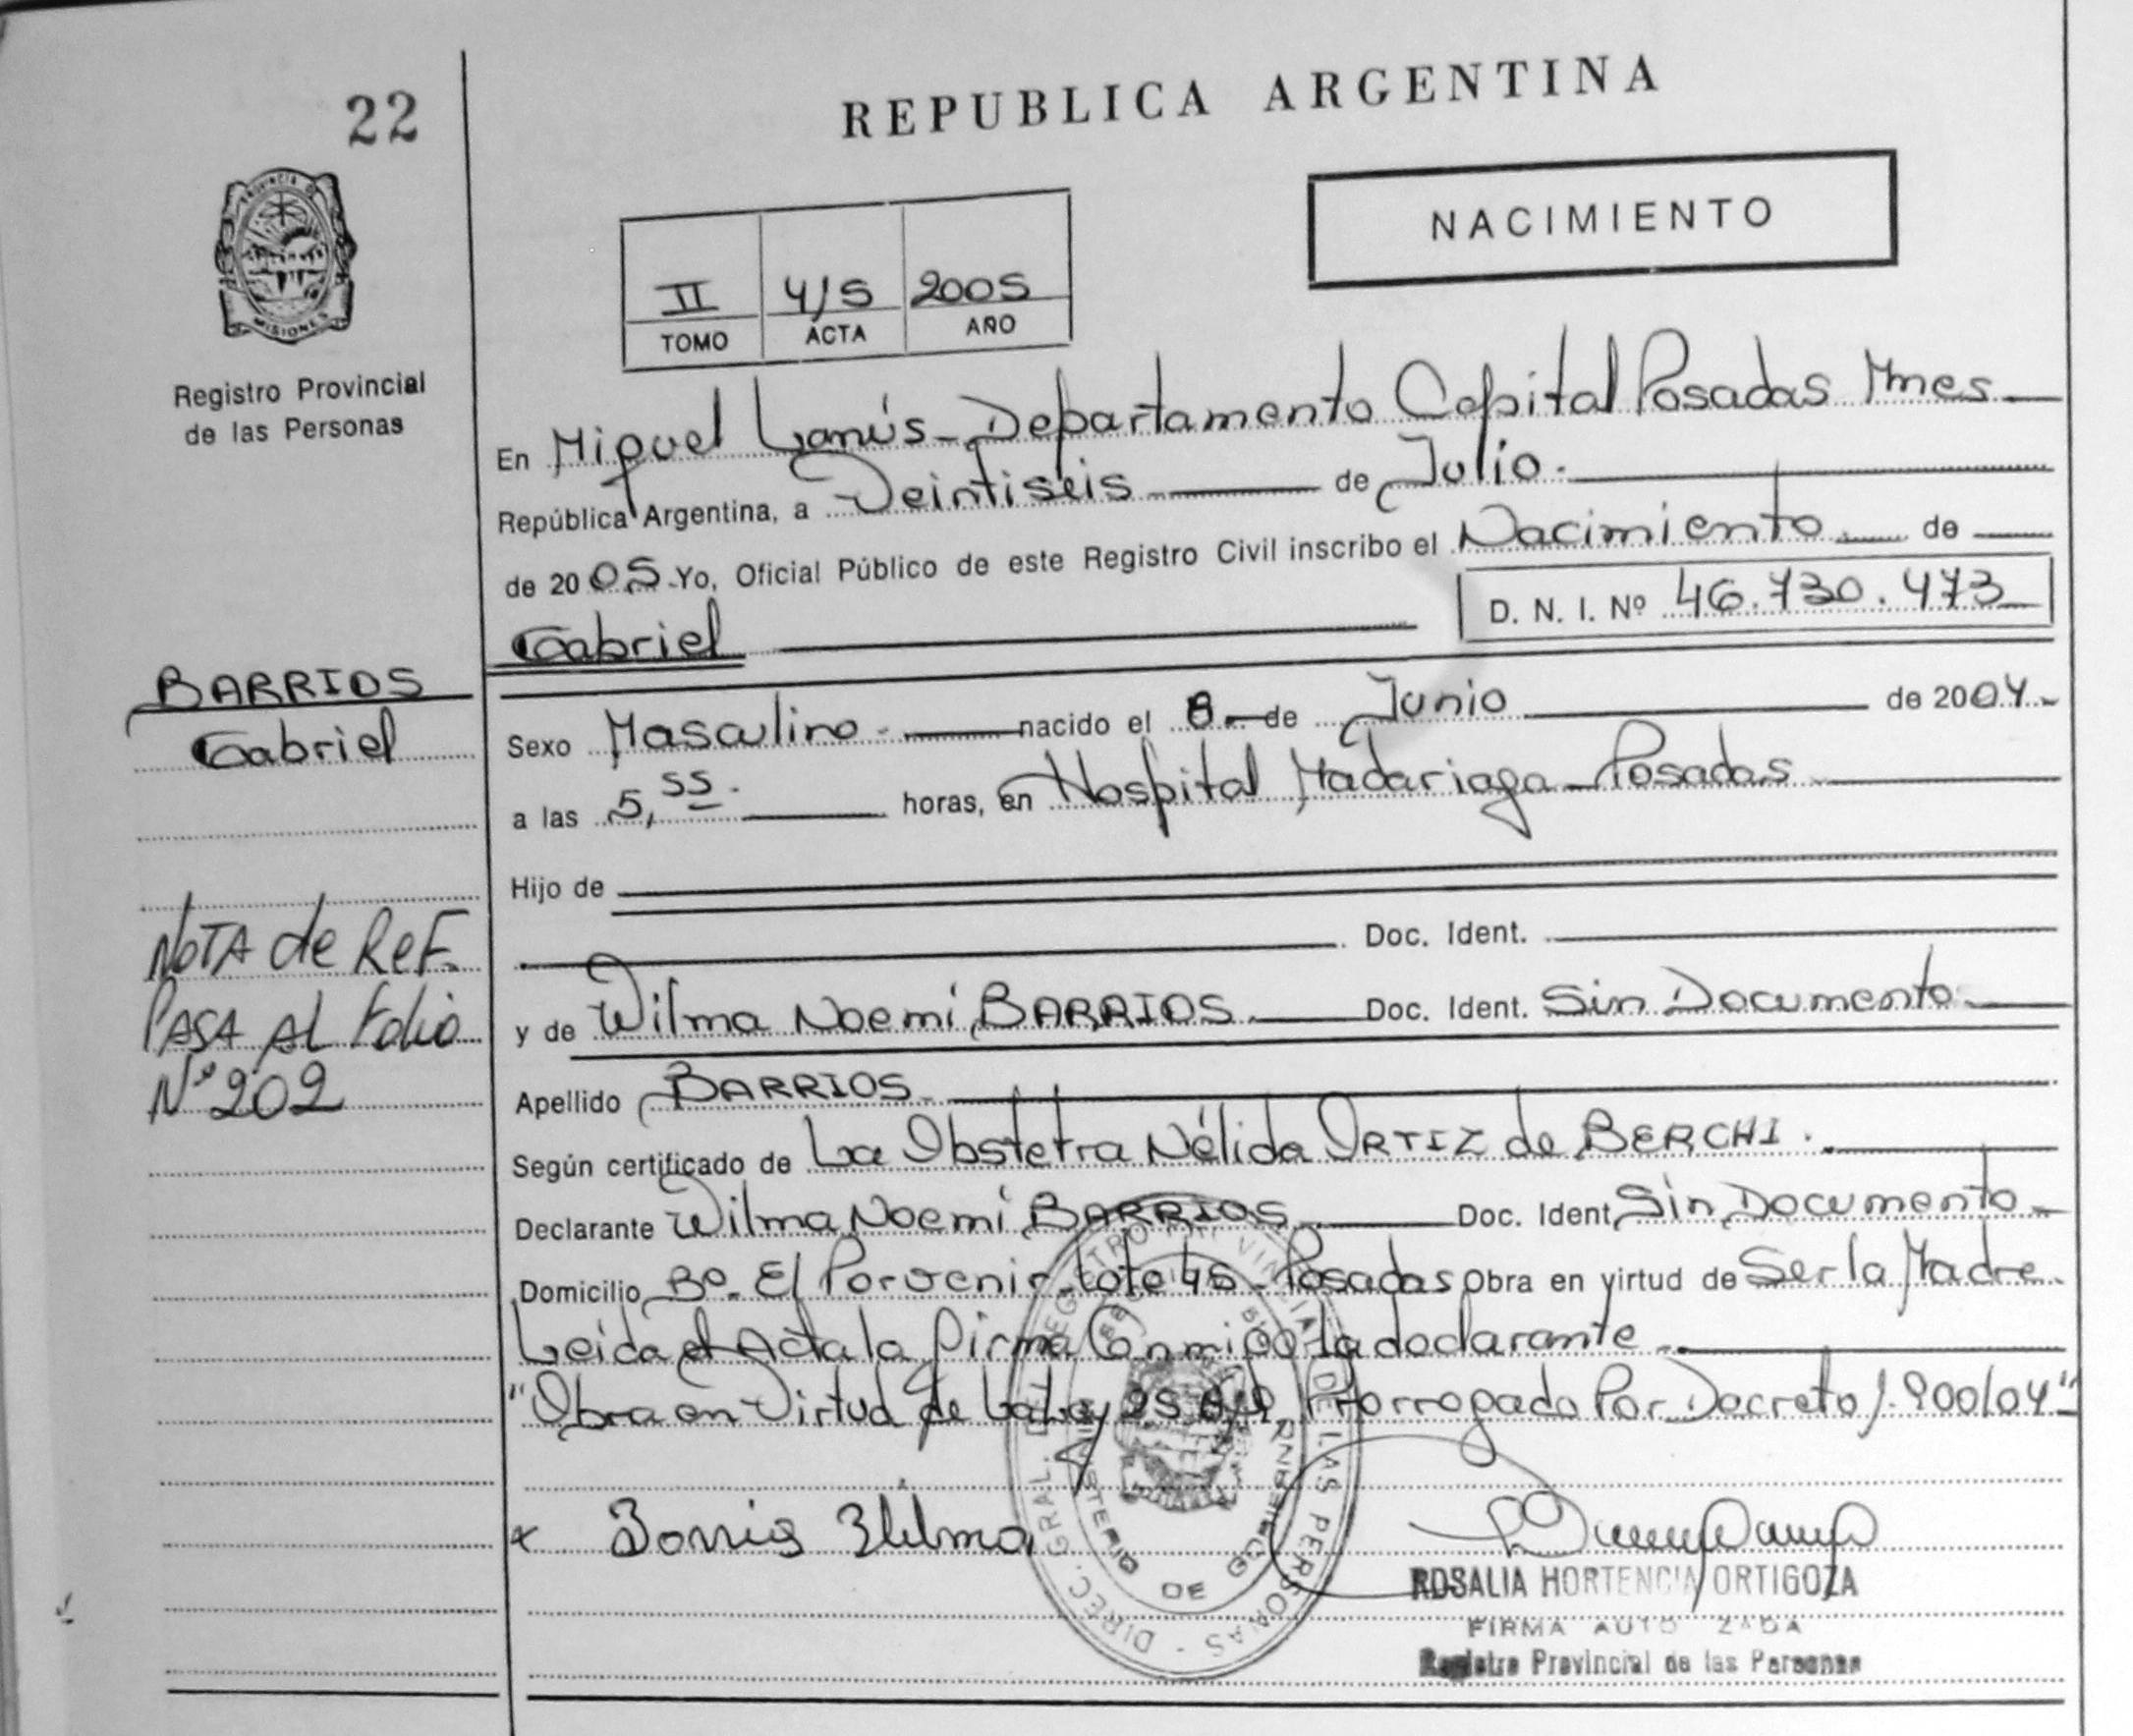 22
REPUBLICA ARGENTINA
PROVINCIA DE
MISIONES
Registro Provincial
de las Personas
NACIMIENTO
II 4/5 2005
TOMO ACTA AÑO
En Miguel Lanús - Departamento Capital Posadas Mnes
República Argentina, a Veintiseis de Julio.
de 2005 Yo, Oficial Público de este Registro Civil inscribo el Nacimiento de
Gabriel
D. N. I. Nº 46.730.473
BARRIOS
Gabriel
Sexo Masculino - nacido el 8 - de Junio de 2004.-
a las 5,55. horas, en Hospital Madariaga - Posadas
Hijo de
Doc. Ident.
NOTA de ReF.
PASA AL Folio
Nº 202
y de Wilma Noemí BARRIOS Doc. Ident. Sin Documento
Apellido BARRIOS
Según certificado de La Obstetra Nélida ORTIZ de BERCHI.
Declarante Wilma Noemí BARRIOS Doc. Ident. Sin Documento
Domicilio Bº. El Porvenir Lote 45 - Posadas Obra en virtud de Ser la Madre
Leida el Acta la firma Conmigo la declarante
"Obra en Virtud de La Ley Prorrogado Por Decreto 1.900/04"
DIREC. GRAL. DEL REGISTRO PROVINCIAL DE LAS PERSONAS
MINISTERIO DE GOBIERNO
ROSALIA HORTENCIA ORTIGOZA
FIRMA AUTORIZADA
Registro Provincial de las Personas